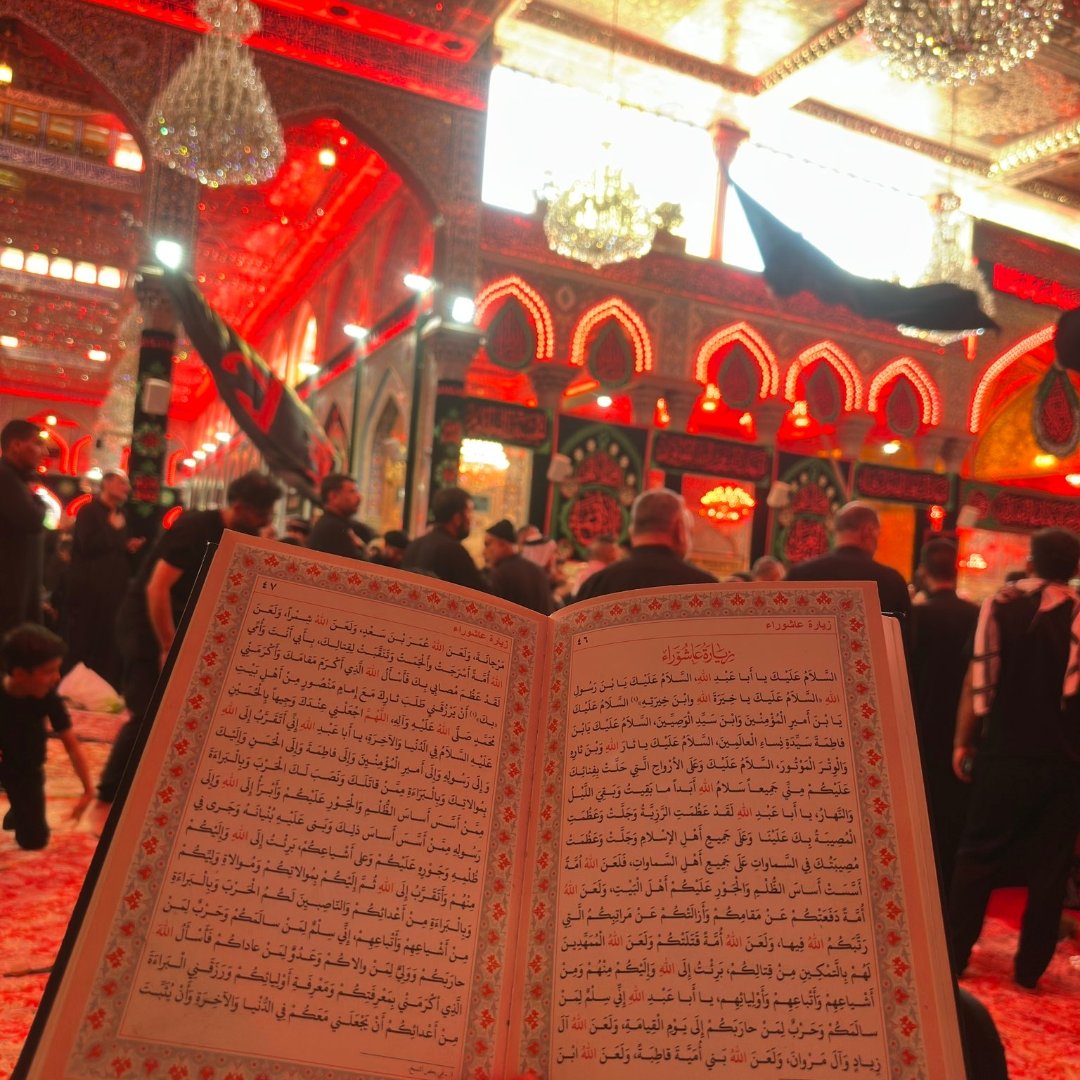 زيارة عاشوراء
٤٦
زِيَارَةُ عَاشُورَاءَ
السَّلامُ عَلَيْكَ يا أَبا عَبْدِ اللهِ، السَّلامُ عَلَيْكَ يَا بْنَ رَسُولِ
اللهِ، السَّلامُ عَلَيْكَ يا خِيَرَةَ اللهِ وابْنَ خِيَرَتِهِ(١) السَّلامُ عَلَيْكَ
يَا بْنَ أَميرِ الْمُؤْمِنينَ وَابْنَ سَيِّدِ الْوَصِيّينَ، السَّلامُ عَلَيْكَ يَابْنَ
فاطِمَةَ سَيِّدَةِ نِساءِ الْعالَمينَ، السَّلامُ عَلَيْكَ يا ثارَ اللهِ وَبْنَ ثارِهِ
وَالْوِتْرَ الْمَوْتُورَ، السَّلامُ عَلَيْكَ وَعَلَى الأَرْواحِ الَّتي حَلَّتْ بِفِنائِكَ
عَلَيْكُمْ مِنّي جَميعاً سَلامُ اللهِ أَبَداً ما بَقيتُ وَبَقِيَ اللَّيْلُ
وَالنَّهارُ، يا أَبا عَبْدِ اللهِ لَقَدْ عَظُمَتِ الرَّزِيَّةُ وَجَلَّتْ وَعَظُمَتِ
الْمُصيبَةُ بِكَ عَلَيْنا وَعَلى جَميعِ أَهْلِ الإسْلامِ وَجَلَّتْ وَعَظُمَتْ
مُصيبَتُكَ فِي السَّماواتِ عَلى جَميعِ أَهْلِ السَّماواتِ، فَلَعَنَ اللهُ أُمَّةً
أَسَّسَتْ أَساسَ الظُّلْمِ وَالْجَوْرِ عَلَيْكُمْ أَهْلَ الْبَيْتِ، وَلَعَنَ اللهُ
أُمَّةً دَفَعَتْكُمْ عَنْ مَقامِكُمْ وَأَزالَتْكُمْ عَنْ مَراتِبِكُمُ الَّتي
رَتَّبَكُمُ اللهُ فيها، وَلَعَنَ اللهُ أُمَّةً قَتَلَتْكُمْ وَلَعَنَ اللهُ الْمُمَهِّدينَ
لَهُمْ بِالتَّمْكينِ مِنْ قِتالِكُمْ، بَرِئْتُ إِلَى اللهِ وَإِلَيْكُمْ مِنْهُمْ وَمِنْ
أَشْياعِهِمْ وَأَتْباعِهِمْ وَأَوْلِيائِهِم، يا أَبا عَبْدِ اللهِ إِنّي سِلْمٌ لِمَنْ
سالَمَكُمْ وَحَرْبٌ لِمَنْ حارَبَكُمْ إِلى يَوْمِ الْقِيامَةِ، وَلَعَنَ اللهُ آلَ
زِيادٍ وَآلَ مَرْوانَ، وَلَعَنَ اللهُ بَني أُمَيَّةَ قاطِبَةً، وَلَعَنَ اللهُ ابْنَ
زيارة عاشوراء
٤٧
مَرْجانَةَ، وَلَعَنَ اللهُ عُمَرَ بْنَ سَعْدٍ، وَلَعَنَ اللهُ شِمْراً، وَلَعَنَ
اللهُ أُمَّةً أَسْرَجَتْ وَأَلْجَمَتْ وَتَنَقَّبَتْ لِقِتالِكَ، بِأَبي أَنْتَ وَأُمّي
لَقَدْ عَظُمَ مُصابي بِكَ فَأَسْأَلُ اللهَ الَّذي أَكْرَمَ مَقامَكَ وَأَكْرَمَني
بِكَ، أَنْ يَرْزُقَني طَلَبَ ثارِكَ مَعَ إِمامٍ مَنْصُورٍ مِنْ أَهْلِ بَيْتِ
مُحَمَّدٍ صَلَّى اللهُ عَلَيْهِ وَآلِهِ، اللّهُمَّ اجْعَلْني عِنْدَكَ وَجيهاً بِالْحُسَيْنِ
عَلَيْهِ السَّلامُ فِي الدُّنْيا وَالآخِرَةِ، يا أَبا عَبْدِ اللهِ إِنّي أَتَقَرَّبُ إِلى اللهِ
وَإِلى رَسُولِهِ وَإِلى أَميرِ الْمُؤْمِنينَ وَإِلى فاطِمَةَ وَإِلَى الْحَسَنِ وَإِلَيْكَ
بِمُوالاتِكَ وَبِالْبَراءَةِ مِمَّنْ قاتَلَكَ وَنَصَبَ لَكَ الْحَرْبَ وَبِالْبَراءَةِ
مِمَّنْ أَسَّسَ أَساسَ الظُّلْمِ وَالْجَوْرِ عَلَيْكُمْ وَأَبْرَأُ إِلَى اللهِ وَإِلى
رَسُولِهِ مِمَّنْ أَسَّسَ أَساسَ ذلِكَ وَبَنى عَلَيْهِ بُنْيانَهُ وَجَرى فِي
ظُلْمِهِ وَجَوْرِهِ عَلَيْكُمْ وَعَلى أَشْياعِكُمْ، بَرِئْتُ إِلَى اللهِ وَإِلَيْكُمْ
مِنْهُمْ وَأَتَقَرَّبُ إِلَى اللهِ ثُمَّ إِلَيْكُمْ بِمُوالاتِكُمْ وَمُوالاةِ وَلِيِّكُمْ
وَبِالْبَراءَةِ مِنْ أَعْدائِكُمْ وَالنّاصِبينَ لَكُمُ الْحَرْبَ وَبِالْبَراءَةِ
مِنْ أَشْياعِهِمْ وَأَتْباعِهِمْ، إِنّي سِلْمٌ لِمَنْ سالَمَكُمْ وَحَرْبٌ لِمَنْ
حارَبَكُمْ وَوَلِيٌّ لِمَنْ والاكُمْ وَعَدُوٌّ لِمَنْ عاداكُمْ فَأَسْأَلُ اللهَ
الَّذي أَكْرَمَني بِمَعْرِفَتِكُمْ وَمَعْرِفَةِ أَوْلِيائِكُمْ وَرَزَقَنِي الْبَراءَةَ
مِنْ أَعْدائِكُمْ أَنْ يَجْعَلَني مَعَكُمْ فِي الدُّنْيا وَالآخِرَةِ وَأَنْ يُثَبِّتَ